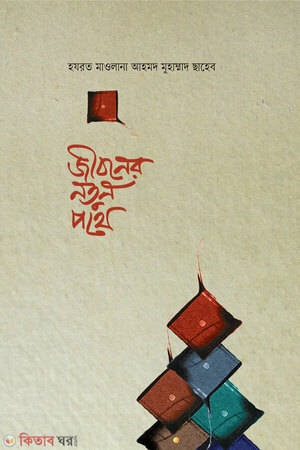 হযরত মাওলানা আহমদ মুহাম্মাদ ছাহেব
জীবনের
নতুন
পথে
কিতাব ঘর